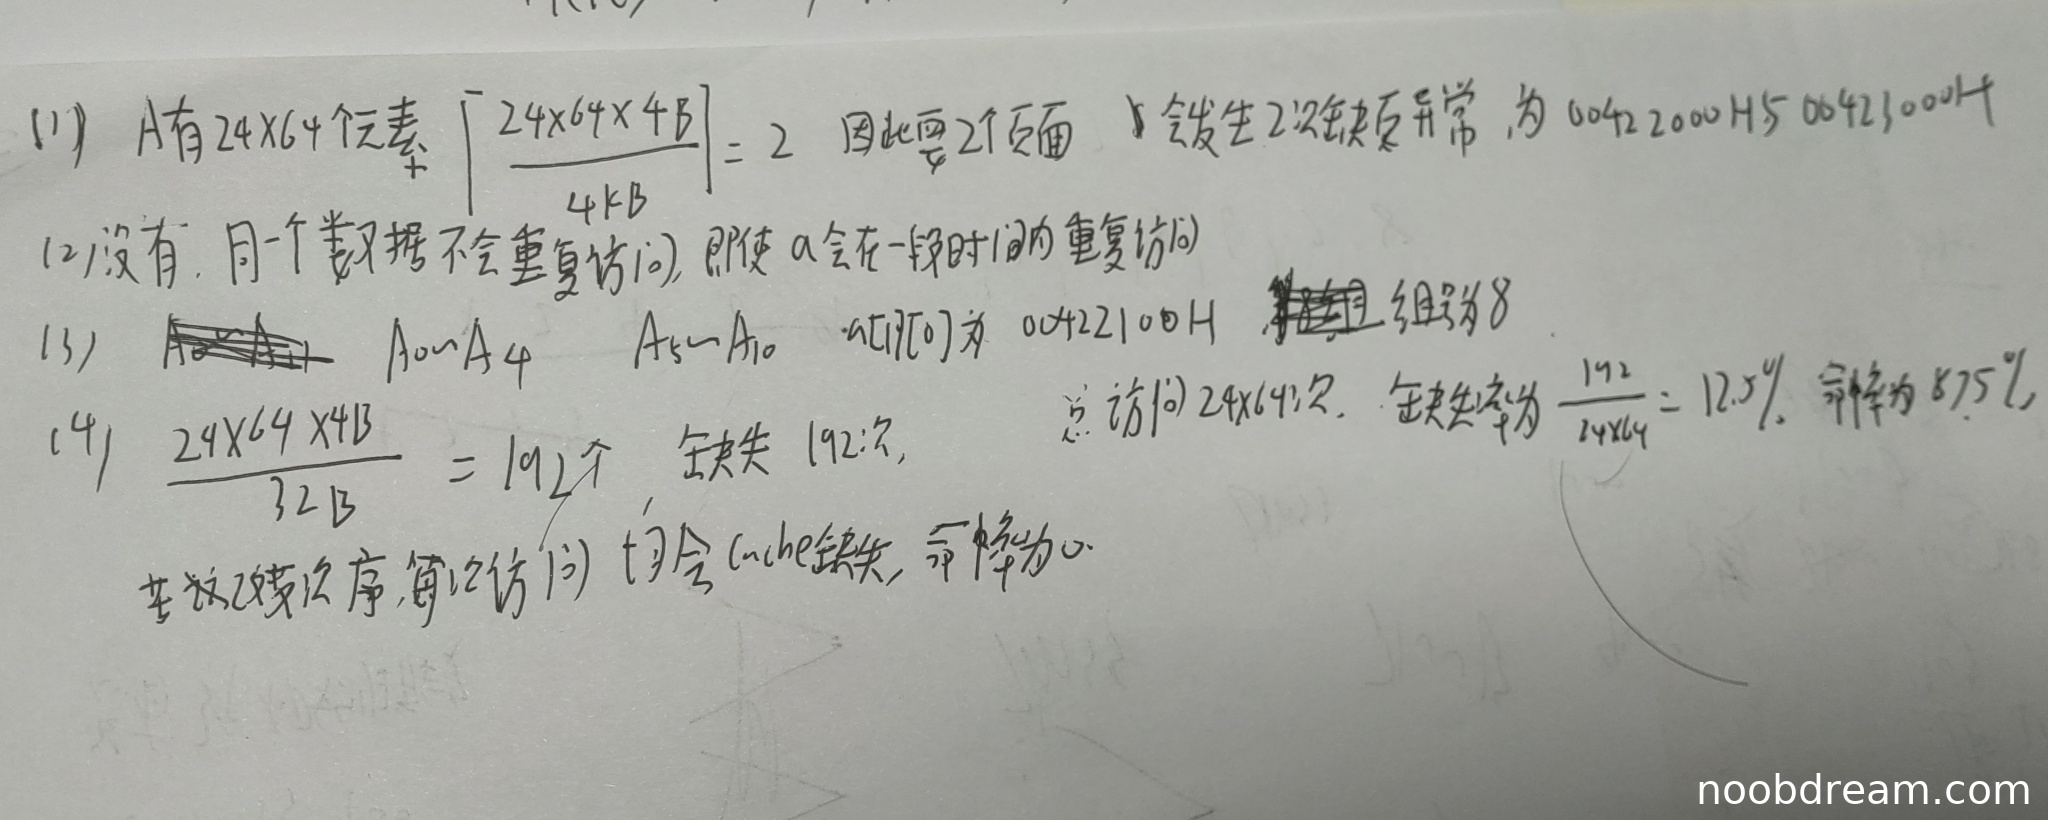 (1) A有24×64个元素 ⌈24×64×4B/4KB⌉ = 2 因此需要2个页面 会发生2次缺页异常,为00422000H与00423000H
(2)没有,同一个数据不会重复访问,即使a会在一段时间内重复访问
(3) A0~A4 A5~A10 a[1][0]为 00422100H 组号为8
(4) 24×64×4B/32B = 192个,缺失 192次, 总访问24×64次. 缺失率为 192/24×64 = 12.5%. 命中率为87.5%
若改变次序,每次访问均会Cache缺失,命中率为0.
noobdream.com